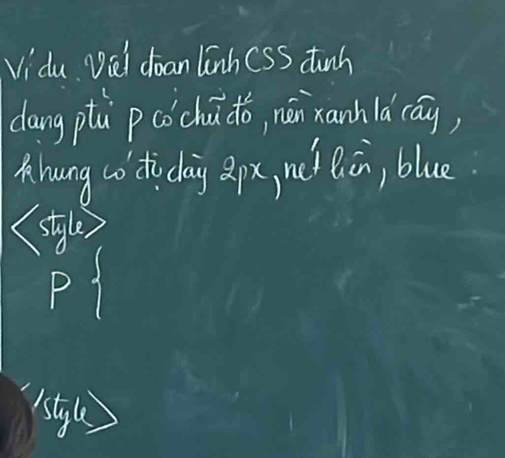 Ví dụ. Viết đoạn lệnh CSS định
dạng ptử p có chữ đỏ, nền xanh lá cây,
khung có độ dày 2px, nét liền, blue.
<style>
p {
</style>